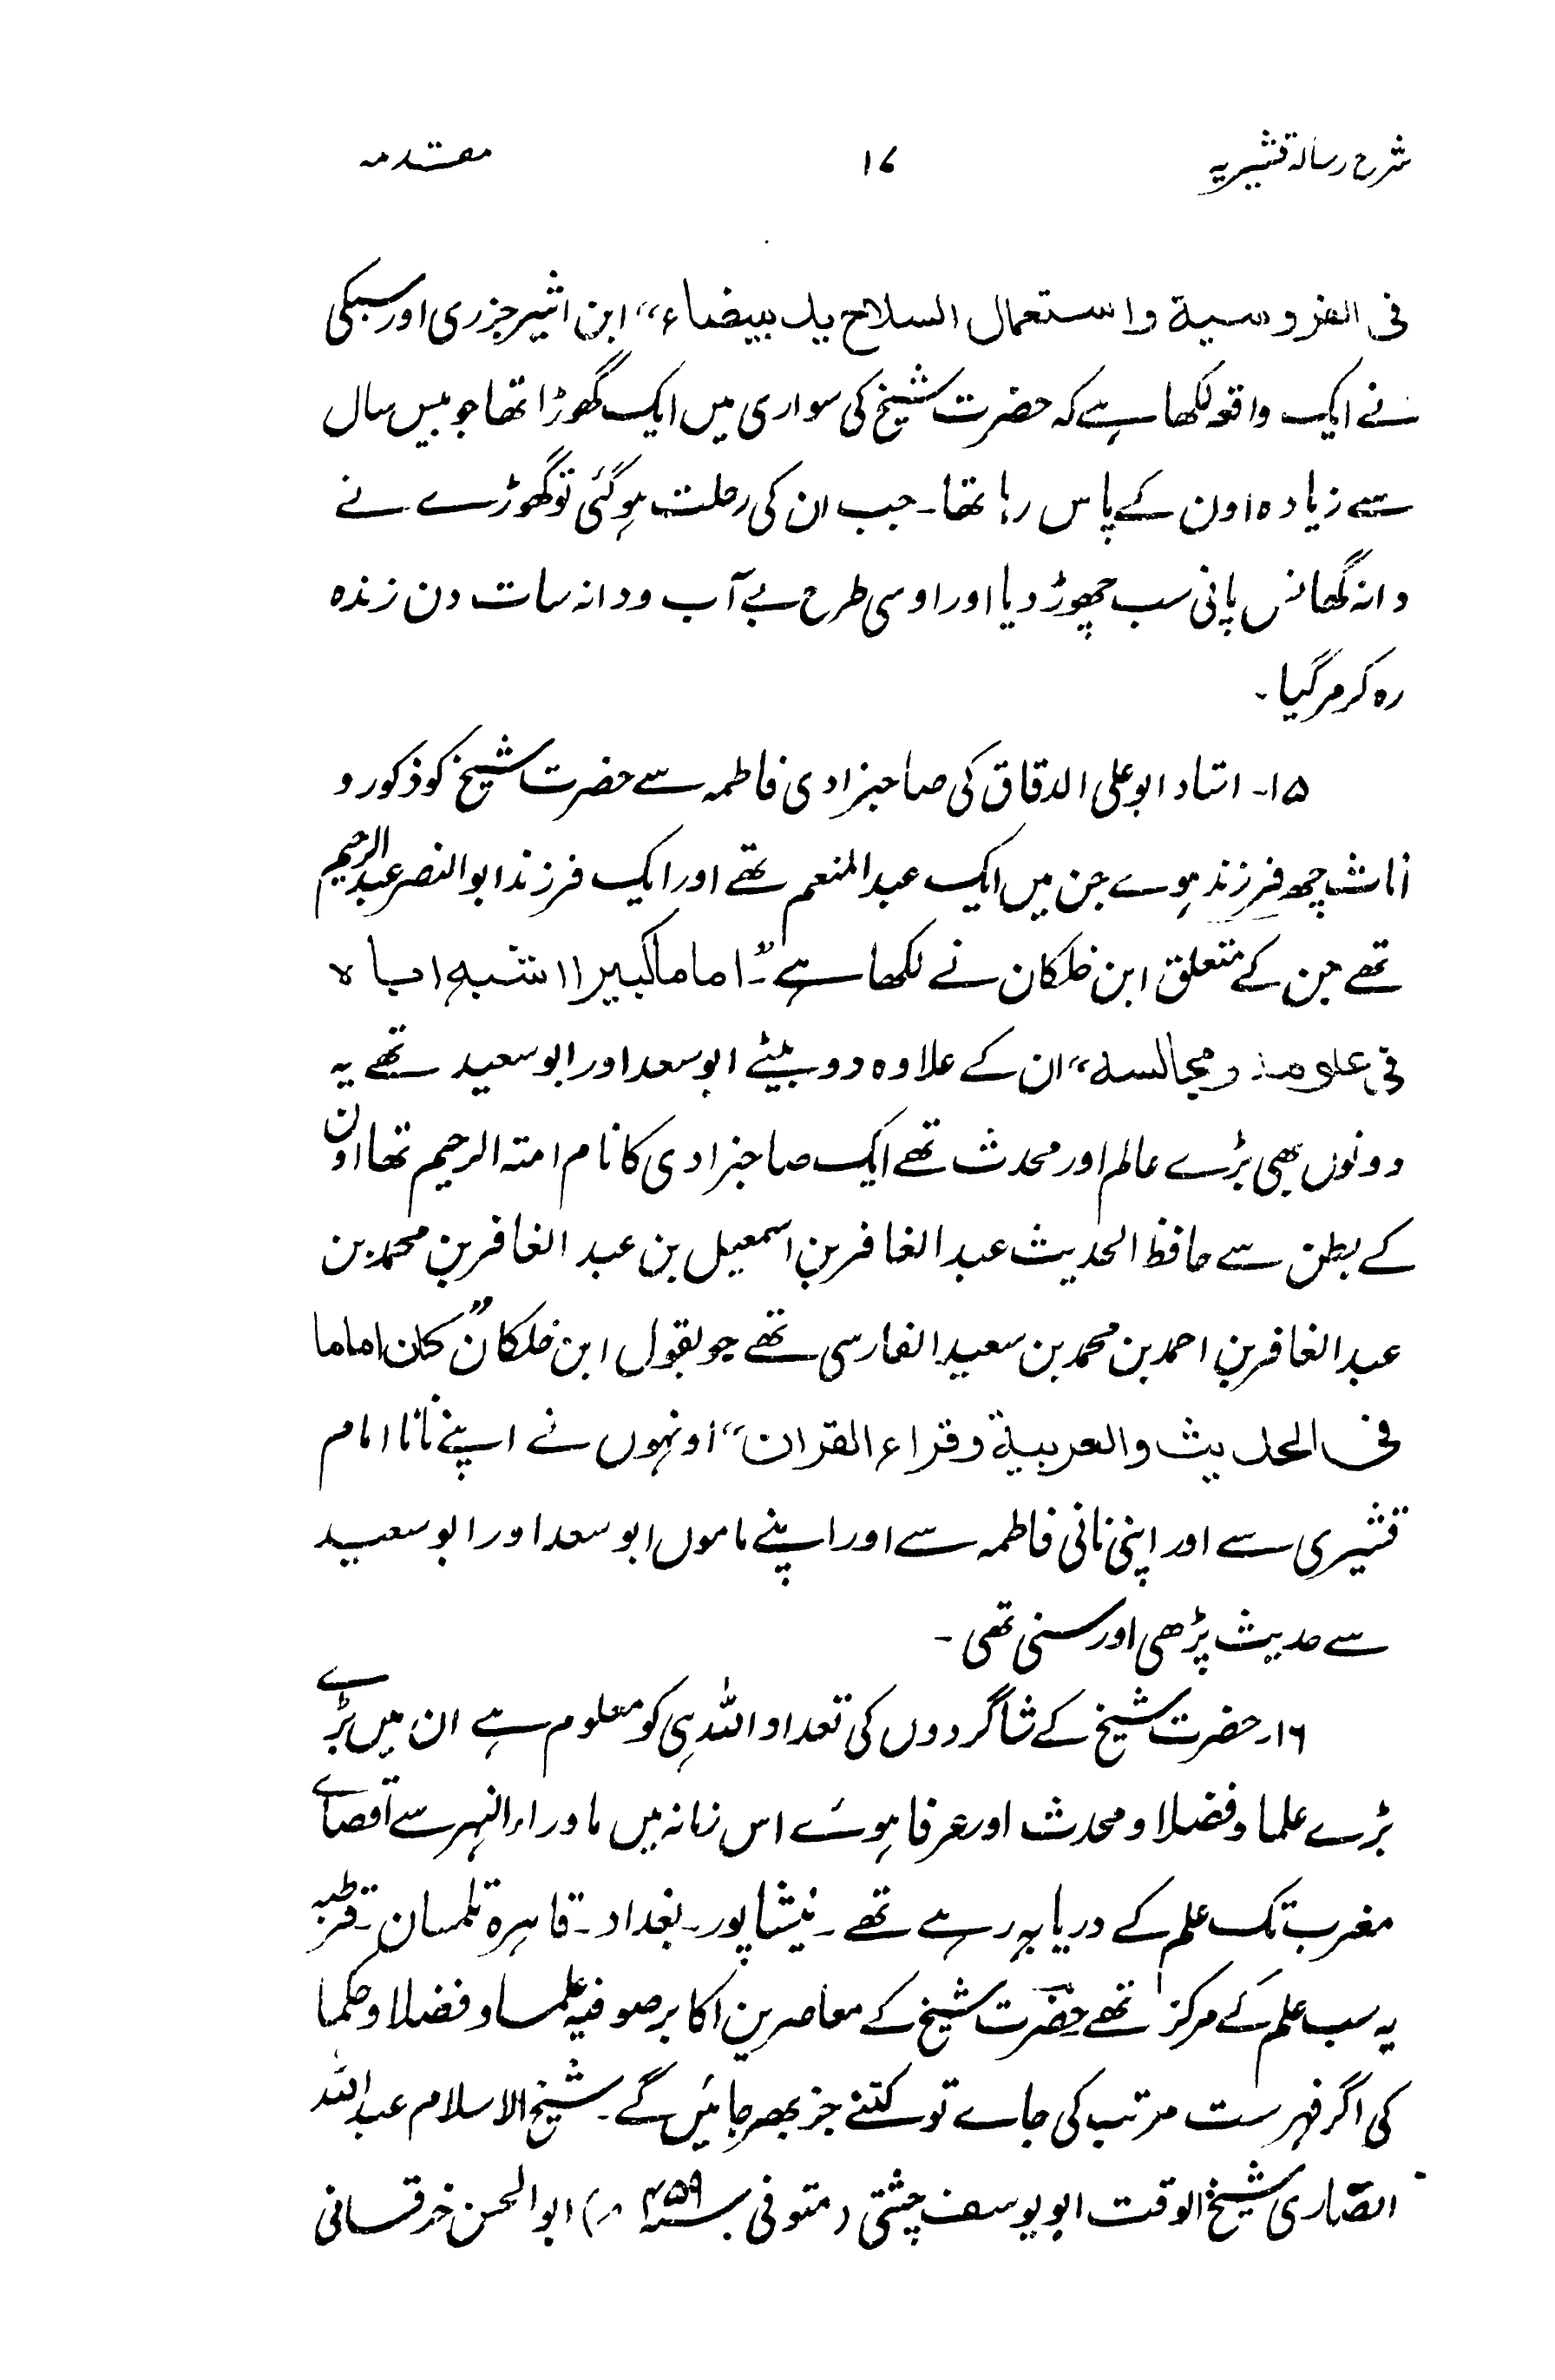 شرح رسالہ قشیریہ ۱۷ مقدمہ
فی الفروسیة واستعمال السلاح ید بیضاء“ ابن اثیر جزری اور سبکی
نے ایک واقعہ لکھا ہے کہ حضرت شیخ کی سواری میں ایک گھوڑا تھا جو بیس سال
سے زیادہ اون کے پاس رہا تھا۔ جب ان کی رحلت ہوگئی تو گھوڑے نے
دانہ گھانس پانی سب چھوڑ دیا اور اوسی طرح بے آب و دانہ سات دن زندہ
رہ کر مر گیا۔
۱۵۔ استاد ابو علی الدقاق کی صاحبزادی فاطمہ سے حضرت شیخ کو ذکور و
اناث چھ فرزند ہوے جن میں ایک عبدالمنعم تھے اور ایک فرزند ابو النصر عبدالرحیم
تھے جن کے متعلق ابن خلکان نے لکھا ہے۔ ”اماما کبیرا اشبہ اباہ
فی علومہ ومجالسہ“ ان کے علاوہ دو بیٹے ابو سعد اور ابو سعید تھے یہ
دونوں بھی بڑے عالم اور محدث تھے ایک صاحبزادی کا نام امتہ الرحیم تھا اون
کے بطن سے حافظ الحدیث عبد الغافر بن اسمعیل بن عبد الغافر بن محمد بن
عبد الغافر بن احمد بن محمد بن سعید الفارسی تھے جو بقول ابن خلکان ”کان اماما
فی الحدیث والعربیة وقراء القران“ اونہوں نے اپنے نانا امام
قشیری سے اور اپنی نانی فاطمہ سے اور اپنے ماموں ابو سعد اور ابو سعید
سے حدیث پڑھی اور سنی تھی۔
۱۶۔ حضرت شیخ کے شاگردوں کی تعداد اللہ ہی کو معلوم ہے ان میں بڑے
بڑے علما و فضلا و محدث اور عرفا ہوئے اس زمانہ میں ماوراء النہر سے اقصاے
مغرب تک علم کے دریا بہ رہے تھے۔ نیشاپور۔ بغداد۔ قاہرہ تلمسان۔ قرطبہ
یہ سب علم کے مرکز تھے حضرت شیخ کے معاصرین اکابر صوفیہ علما و فضلا و حکما
کی اگر فہرست مرتب کی جاے تو کتنے جز بھر جائیں گے۔ شیخ الاسلام عبداللہ
انصاری شیخ الوقت ابو یوسف چشتی (متوفی سنہ ۴۵۹ھ) ابوالحسن خرقانی